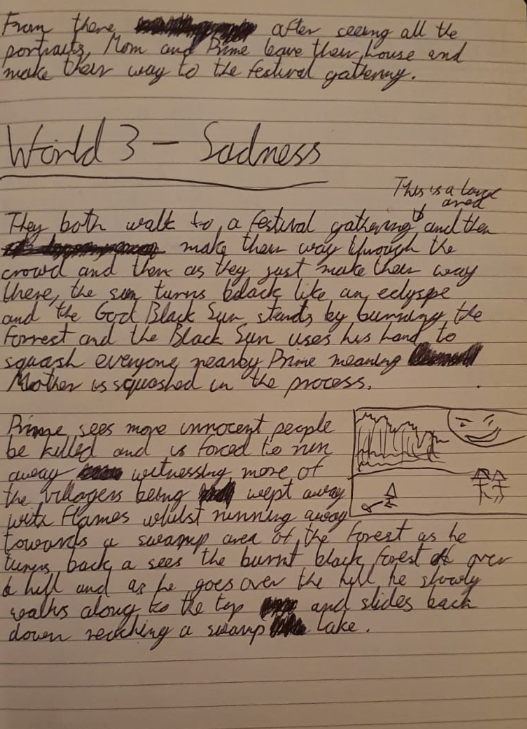 From there after seeing all the
portraits, Mom and Prime leave their house and
make their way to the festival gathering.
World 3 - Sadness
This is a large
area
They both walk to a festival gathering and then
make their way through the
crowd and then as they just make their way
there, the sun turns black like an eclyspe
and the God Black Sun stands by burning the
Forrest and the Black Sun uses his hand to
squash everyone nearby Prime meaning
Mother is squashed in the process.
Prime sees more innocent people
be killed and is forced to run
away witnessing more of
the villagers being wept away
with flames whilst running away
towards a swamp area of the forest as he
turns back a sees the burnt black forest over
a hill and as he goes over the hill he slowly
walks along to the top and slides back
down reaching a swamp lake.